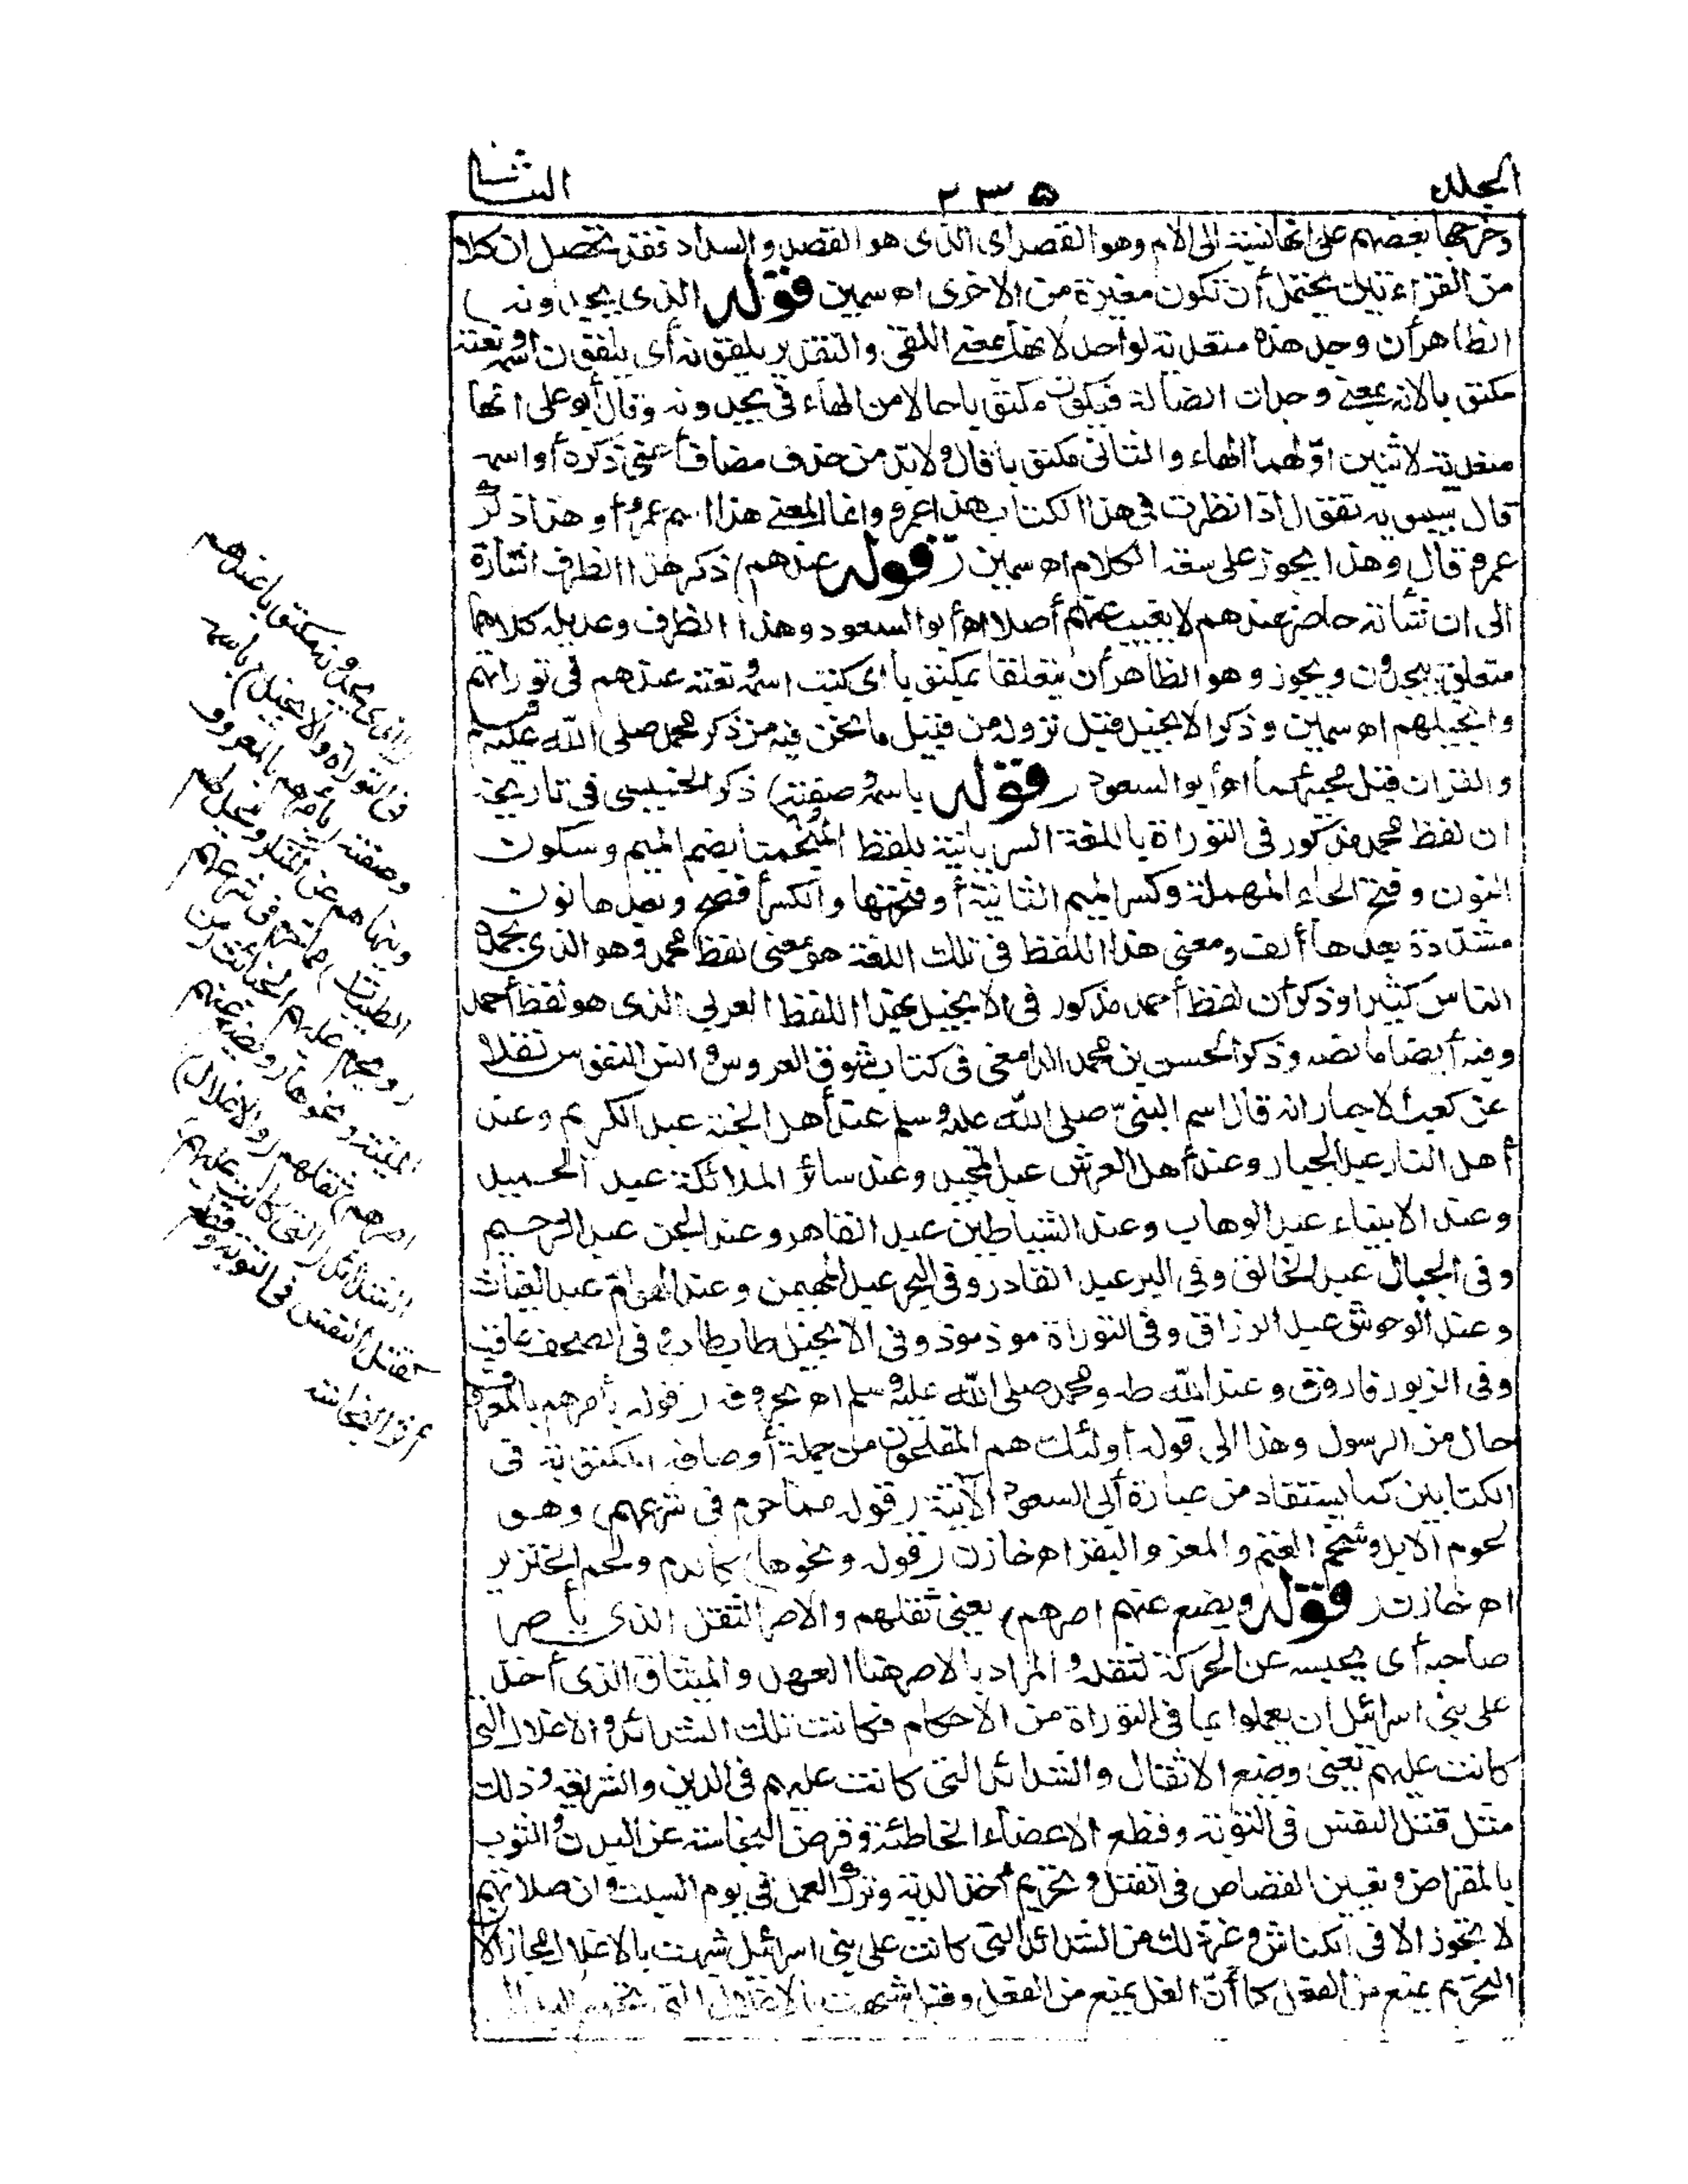 المجلد
٢٣٥
الثا
وخرجها بعضهم على انها نسبة الى الام وهو القصد أى الذى هو القصد والسداد فقد تحصل ان كلا
من القراءتين يحتمل أن تكون مغيرة من الاخرى اه سمين قوله الذى يجدونه )
الظاهر أن وجد هذه متعدية لواحد لانها بمعنى اللقى والتقدير يلقونه أى يلقون اسمه ونعته
مكتوبا لانه بمعنى وجدان الضالة فيكون مكتوبا حالا من الهاء فى يجدونه وقال أبو على انها
متعدية لاثنين اولهما الهاء والثانى مكتوبا قال ولابد من حذف مضاف أعنى ذكره أو اسمه
قال سيبويه تقول اذا نظرت فى هذا الكتاب هذا عمرو وانما المعنى هذا اسم عمرو أو هذا ذكر
عمرو قال وهذا يجوز على سعة الكلام اه سمين (قوله عندهم) ذكر هذا الظرف اشارة
الى ان شأنه حاضر عندهم لا يغيب عنهم أصلا اه أبو السعود وهذا الظرف وعديله كلاهما
متعلق بيجدون ويجوز وهو الظاهر أن يتعلقا بمكتوبا أى كتب اسمه ونعته عندهم فى توراتهم
وانجيلهم اه سمين وذكر الانجيل قبل نزوله من قبيل ما نحن فيه من ذكر محمد صلى الله عليه وسلم
والقران قبل مجيئهما اه أبو السعود (قوله باسمه وصفته) ذكر الخميسى فى تاريخه
ان لفظ محمد مذكور فى التوراة باللغة السريانية بلفظ المنحمنا بضم الميم وسكون
النون وفتح الحاء المهملة وكسر الميم الثانية أو فتحها والكسر أفصح وبعدها نون
مشددة بعدها ألف ومعنى هذا اللفظ فى تلك اللغة هو معنى لفظ محمد وهو الذى يحمده
الناس كثيرا وذكر أن لفظ أحمد مذكور فى الانجيل بهذا اللفظ العربى الذى هو لفظ أحمد
وفيه أيضا ما نصه وذكر الحسن بن محمد الدامغى فى كتاب شوق العروس وانس النفوس نقلا
عن كعب الاحبار انه قال اسم النبى صلى الله عليه وسلم عند أهل الجنة عبد الكريم وعند
أهل النار عبد الجبار وعند أهل العرش عبد المجيد وعند سائر الملائكة عبد الحميد
وعند الانبياء عبد الوهاب وعند الشياطين عبد القاهر وعند الجن عبد الرحيم
وفى الجبال عبد الخالق وفى البر عبد القادر وفى البحر عبد المهيمن وعند الهوام عبد الغياث
وعند الوحوش عبد الرزاق وفى التوراة موذ موذ وفى الانجيل طاب طاب وفى الصحف عاقب
وفى الزبور فاروق وعند الله طه ومحمد صلى الله عليه وسلم اه بحروفه (قوله يأمرهم بالمعروف
حال من الرسول وهذا الى قوله أولئك هم المفلحون من جملة أوصافه المكتوبة فى
الكتابين كما يستفاد من عبارة أبى السعود الآتية (قوله مما حرم فى شرعهم) وهو
لحوم الابل وشحم الغنم والمعز والبقر اه خازن (قوله ونحوها) كالدم ولحم الخنزير
اه خازن (قوله ويضع عنهم اصرهم) يعنى ثقلهم والاصر الثقل الذى يأصر
صاحبه أى يحبسه عن الحركة لثقله والمراد بالاصر هنا العهد والميثاق الذى أخذ
على بنى اسرائيل ان يعملوا بما فى التوراة من الاحكام فكانت تلك الشدائد والاغلال التى
كانت عليهم يعنى وضع الاثقال والشدائد التى كانت عليهم فى الدين والشريعة وذلك
مثل قتل النفس فى التوبة وقطع الاعضاء الخاطئة وقرض النجاسة عن البدن والثوب
بالمقراض وتعيين القصاص فى القتل وتحريم أخذ الدية وترك العمل فى يوم السبت وان صلاتهم
لا تجوز الا فى الكنائس وغير ذلك من الشدائد التى كانت على بنى اسرائيل شبهت بالاغلال مجازا لان
التحريم يمنع من الفعل كما أن الغل يمنع من الفعل وقد شبهت بالاغلال التى تجمع اليد الى
الذى يجدونه مكتوبا عندهم
فى التوراة والانجيل) باسمه
وصفته (يأمرهم بالمعروف
وينهاهم عن المنكر ويحل لهم
الطيبات) مما حرم فى شرعهم
(ويحرم عليهم الخبائث) من
الميتة ونحوها (ويضع عنهم
اصرهم) ثقلهم (والاغلال)
الشدائد (التى كانت عليهم)
كقتل النفس فى التوبة وقطع
أثر النجاسة